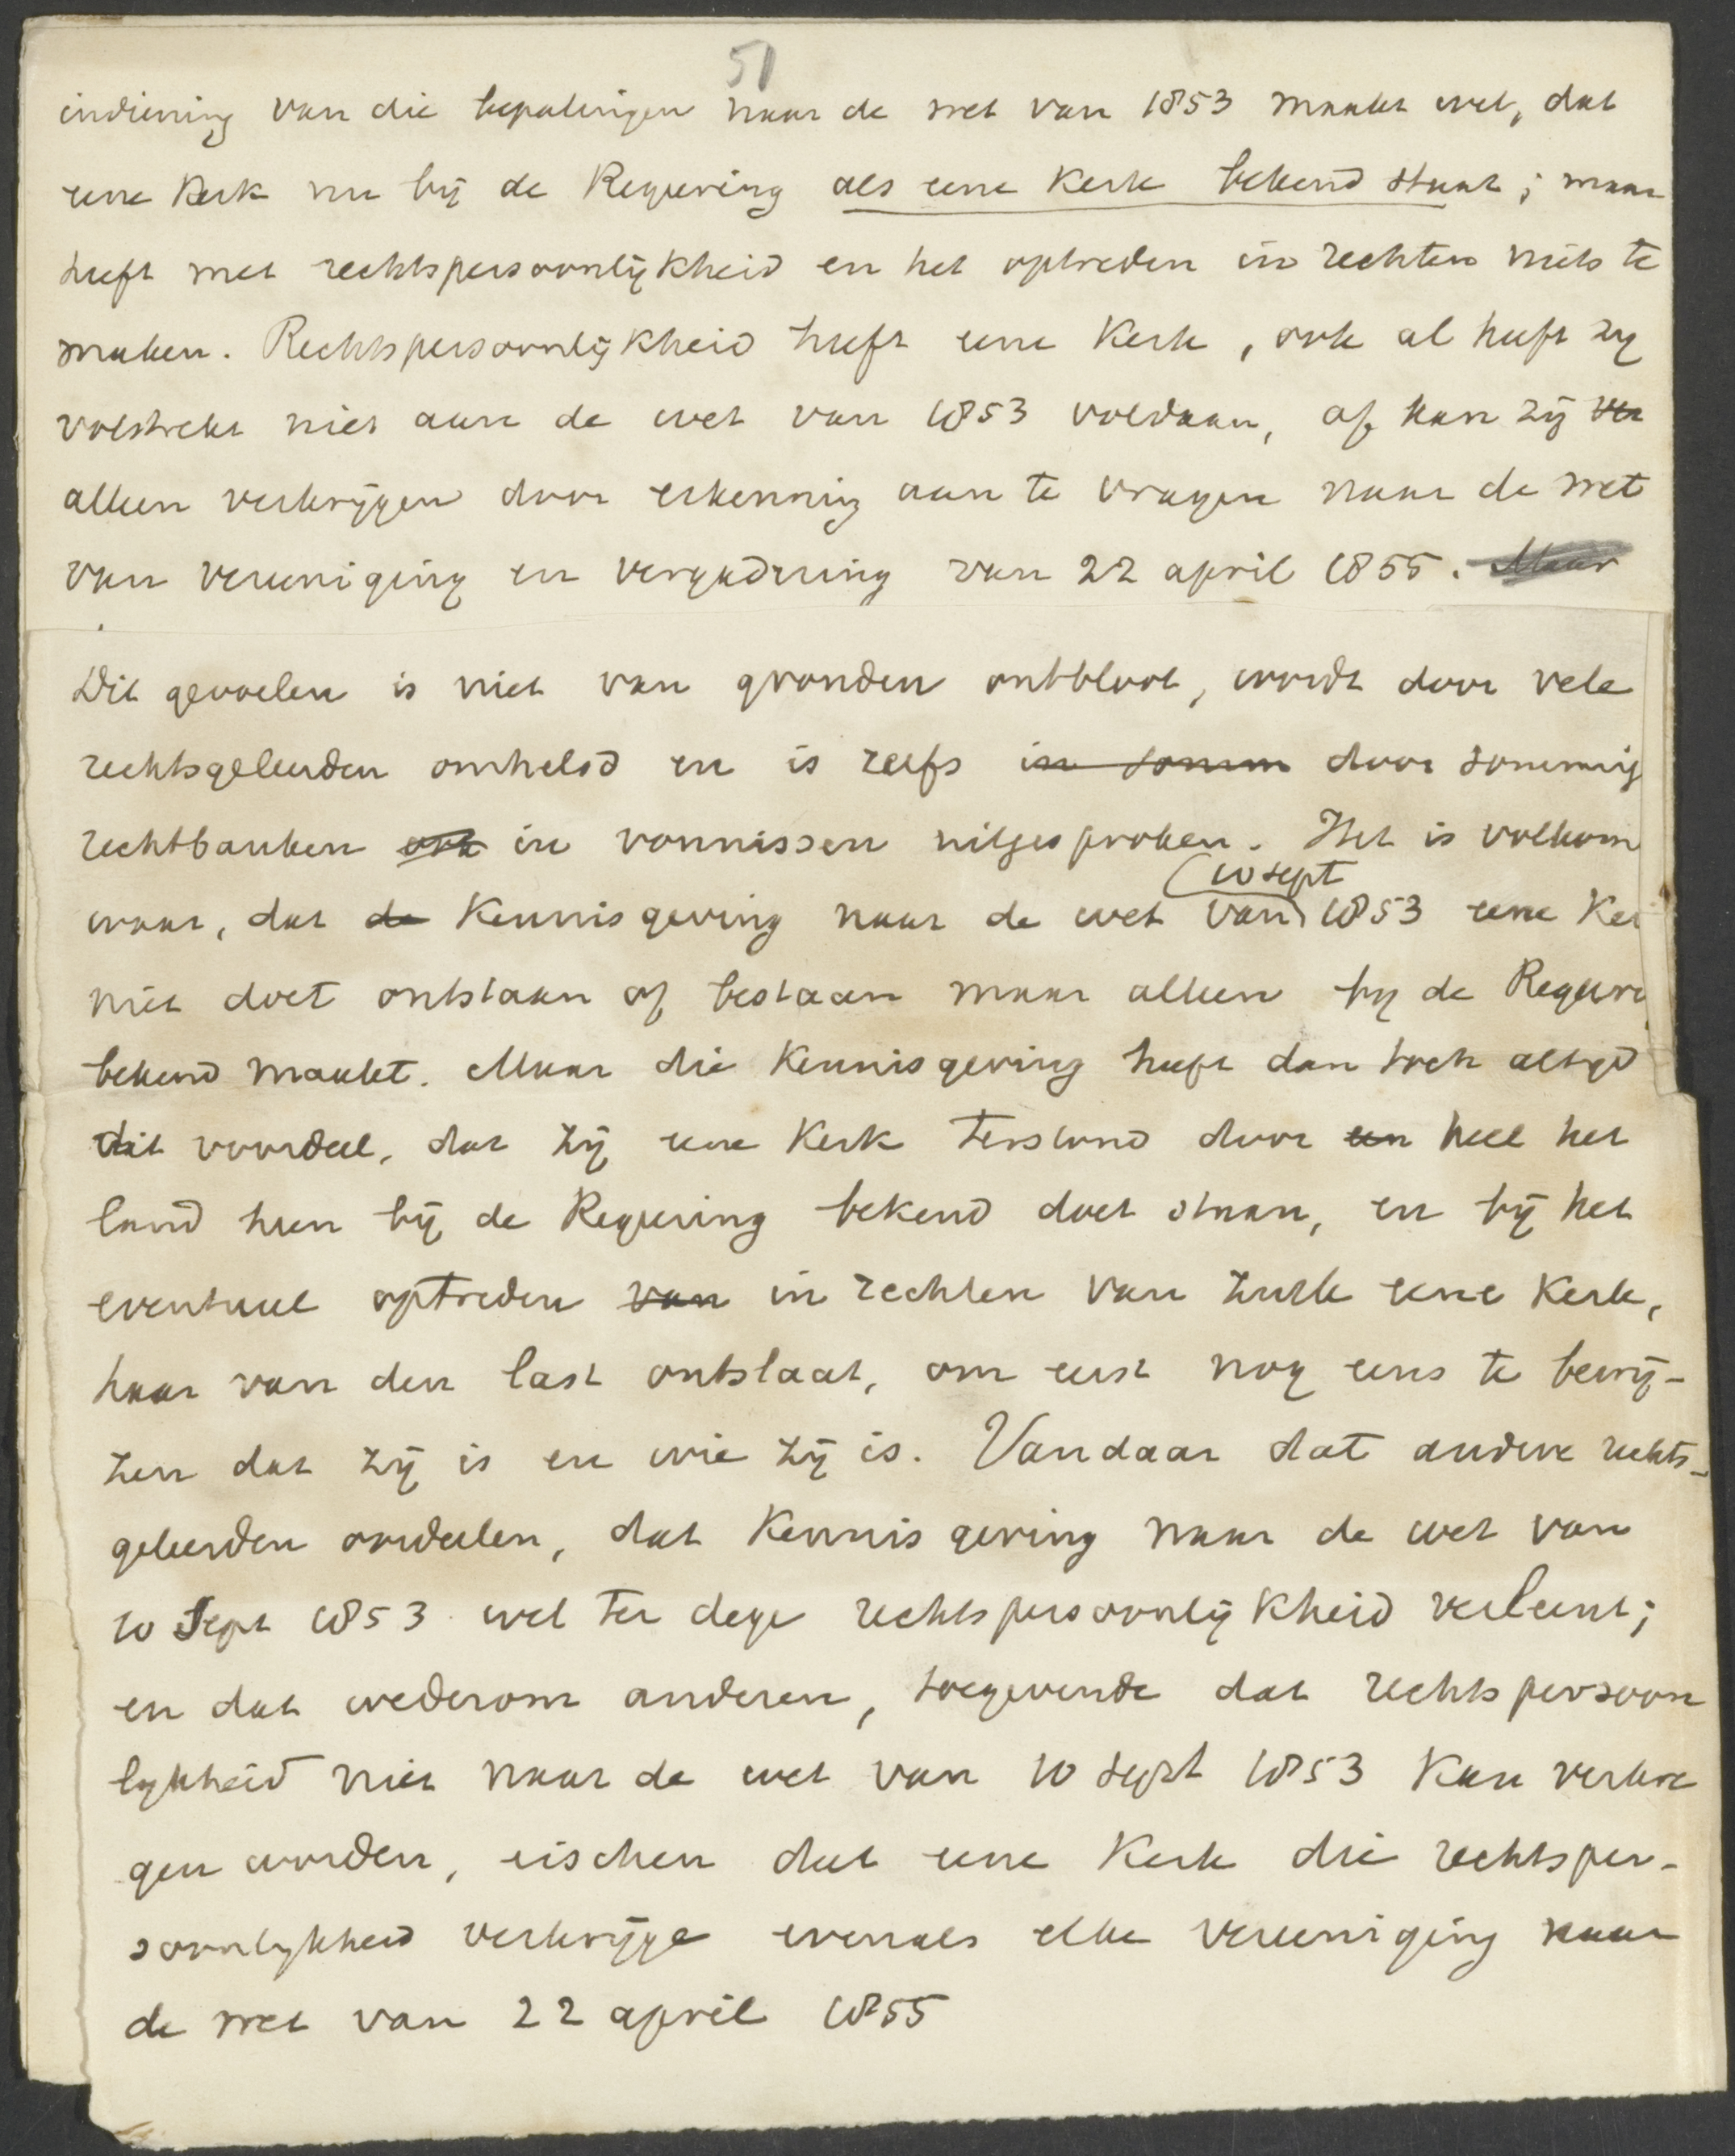 51
indiening van die bepalingen naar de wet van 1853 maakt wel, dat
eene Kerk nu bij de Regeering als eene Kerk bekend staat; maar
heeft met rechtspersoonlijkheid en het optreden in rechten niets te
maken. Rechtspersoonlijkheid heeft eene Kerk, ook al heeft zij
volstrekt niet aan de wet van 1853 voldaan, of kan zij ver
alleen verkrijgen door erkenning aan te vragen naar de wet
van vereeniging en vergadering van 22 april 1855. Maar
Dit gevoelen is niet van gronden ontbloot, wordt door vele
rechtsgeleerden omhelsd en is zelfs in somm door sommig
rechtbanken ook in vonnissen uitgesproken. Het is volkom
10 sept
waar, dat de Kennisgeving naar de wet van 1853 eene Ker
niet doet ontstaan of bestaan maar alleen bij de Regeeri
bekend maakt. Maar die Kennisgeving heeft dan toch altijd
dit voordeel, dat zij eene Kerk terstond door een heel het
land heen bij de Regeering bekend doet staan, en bij het
eventueel optreden van in rechten van zulk eene Kerk,
haar van den last ontslaat, om eerst nog eens te bewij-
zen dat zij is en wie zij is. Vandaar dat andere rechts-
geleerden oordeelen, dat Kennisgeving naar de wet van
10 Sept 1853 wel ter dege rechtspersoonlijkheid verleent;
en dat wederom anderen, toegevende dat rechtspersoon
lijkheid niet naar de wet van 10 sept 1853 Kan verkre
gen worden, eischen dat eene Kerk die rechtsper-
soonlijkheid verkrijge evenals elke vereeniging naar
de wet van 22 april 1855